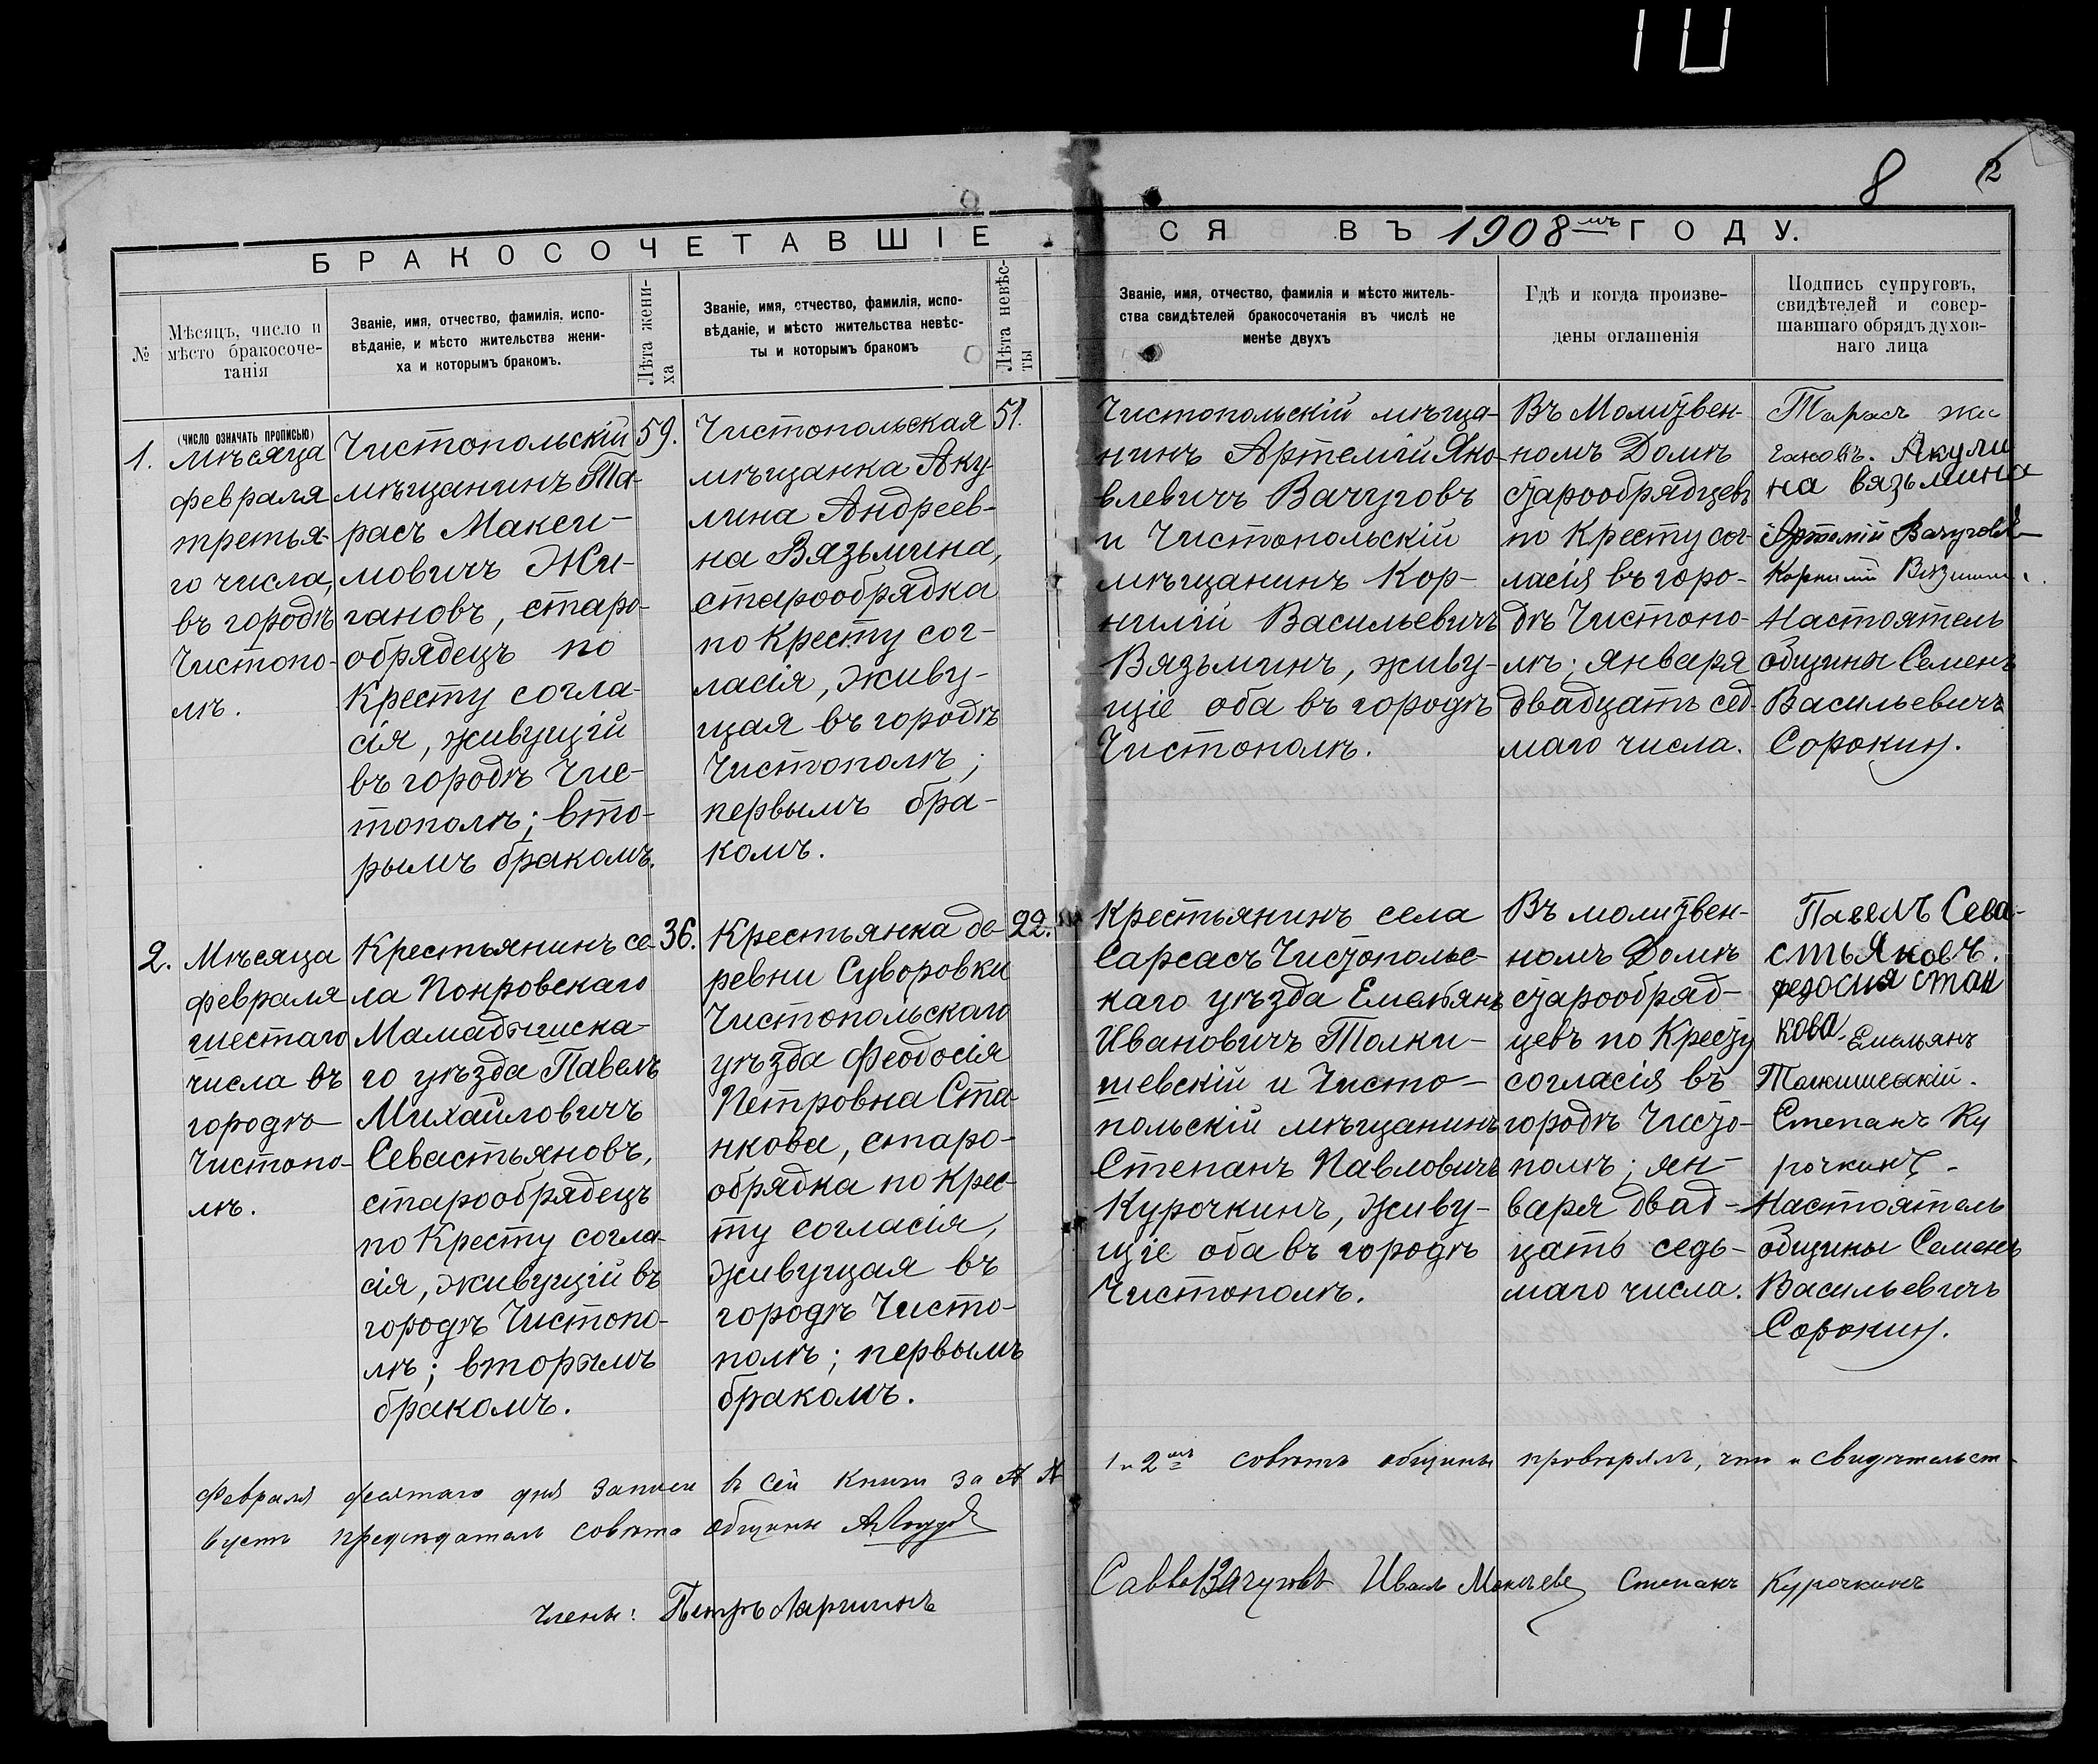 8 2
БРАКОСОЧЕТАВШІЕСЯ ВЪ 1908мъ ГОДУ.
№
Мѣсяцъ, число и
мѣсто бракосоче-
танія
Званіе, имя, отчество, фамилія, испо-
вѣданіе, и мѣсто жительства жени-
ха и которымъ бракомъ.
Лѣта жени-
ха
Званіе, имя, отчество, фамилія, испо-
вѣданіе, и мѣсто жительства невѣс-
ты и которымъ бракомъ
Лѣта невѣс-
ты
Званіе, имя, отчество, фамилія и мѣсто житель-
ства свидѣтелей бракосочетанія въ числѣ не
менѣе двухъ
Гдѣ и когда произве-
дены оглашенія
Подпись супруговъ,
свидѣтелей и совер-
шавшаго обрядъ духов-
наго лица
1.
(ЧИСЛО ОЗНАЧАТЬ ПРОПИСЬЮ)
Мѣсяца
февраля
третья-
го числа,
въ городѣ
Чистопо-
лѣ.
Чистопольскій
мѣщанинъ Та-
расъ Макси-
мовичъ Жи-
гановъ, старо-
обрядецъ по
Кресту согла-
сія, живущій
въ городѣ Чис-
тополѣ; вто-
рымъ бракомъ.
59.
Чистопольская
мѣщанка Аку-
лина Андреев-
на Вязьмина,
старообрядка
по Кресту сог-
ласія, живу-
щая въ городѣ
Чистополѣ;
первымъ бра-
комъ.
51.
Чистопольскій мѣща-
нинъ Артемій Яко-
влевичъ Вачуговъ
и Чистопольскій
мѣщанинъ Кор-
нилій Васильевичъ
Вязьминъ, живу-
щіе оба въ городѣ
Чистополѣ.
Въ Молитвен-
номъ Домѣ
старообрядцевъ
по Кресту сог-
ласія въ горо-
дѣ Чистопо-
лѣ; января
двадцать сед-
маго числа.
Тарасъ Жи
гановъ. Акули
на вязьмина
Артемій Вачуговъ
Корнилій Вязьминъ
Настоятель
общины Семенъ
Васильевичъ
Сорокин.
2.
Мѣсяца
февраля
шестаго
числа въ
городѣ
Чистопо-
лѣ.
Крестьянинъ се-
ла Покровскаго
Мамадышска-
го уѣзда Павелъ
Михайловичъ
Севастьяновъ,
старообрядецъ
по Кресту согла-
сія, живущій въ
городѣ Чистопо-
лѣ; вторымъ
бракомъ.
36.
Крестьянка де-
ревни Суворовки
Чистопольскаго
уѣзда Феодосія
Петровна Ста-
нкова, старо-
обрядка по Крес-
ту согласія,
живущая въ
городѣ Чисто-
полѣ; первымъ
бракомъ.
22.
Крестьянинъ села
Сарсасъ Чистопольс-
каго уѣзда Емельянъ
Ивановичъ Толки-
шевскій и Чисто-
польскій мѣщанинъ
Степанъ Павловичъ
Курочкинъ, живу-
щіе оба въ городѣ
Чистополѣ.
Въ молитвен-
номъ Домѣ
старообряд-
цевъ по Кресту
согласія въ
городѣ Чисто-
полѣ; ян-
варя двад-
цать седь-
маго числа.
Павелъ Сева-
стьяновъ.
федосия стан
кова. Емельянъ
Толкишевскій.
Степанъ Ку
рочкинъ.
Настоятель
общины Семенъ
Васильевичъ
Сорокин.
Февраля десятаго дня записи въ сей книги за № № 1 и 2мъ совѣтъ общины провѣрялъ, что и свидѣтельст-
вуетъ предсѣдатель совѣта общины
Члены: Петръ Ларшинъ Савва Вачуговъ Иванъ Степанъ Курочкинъ